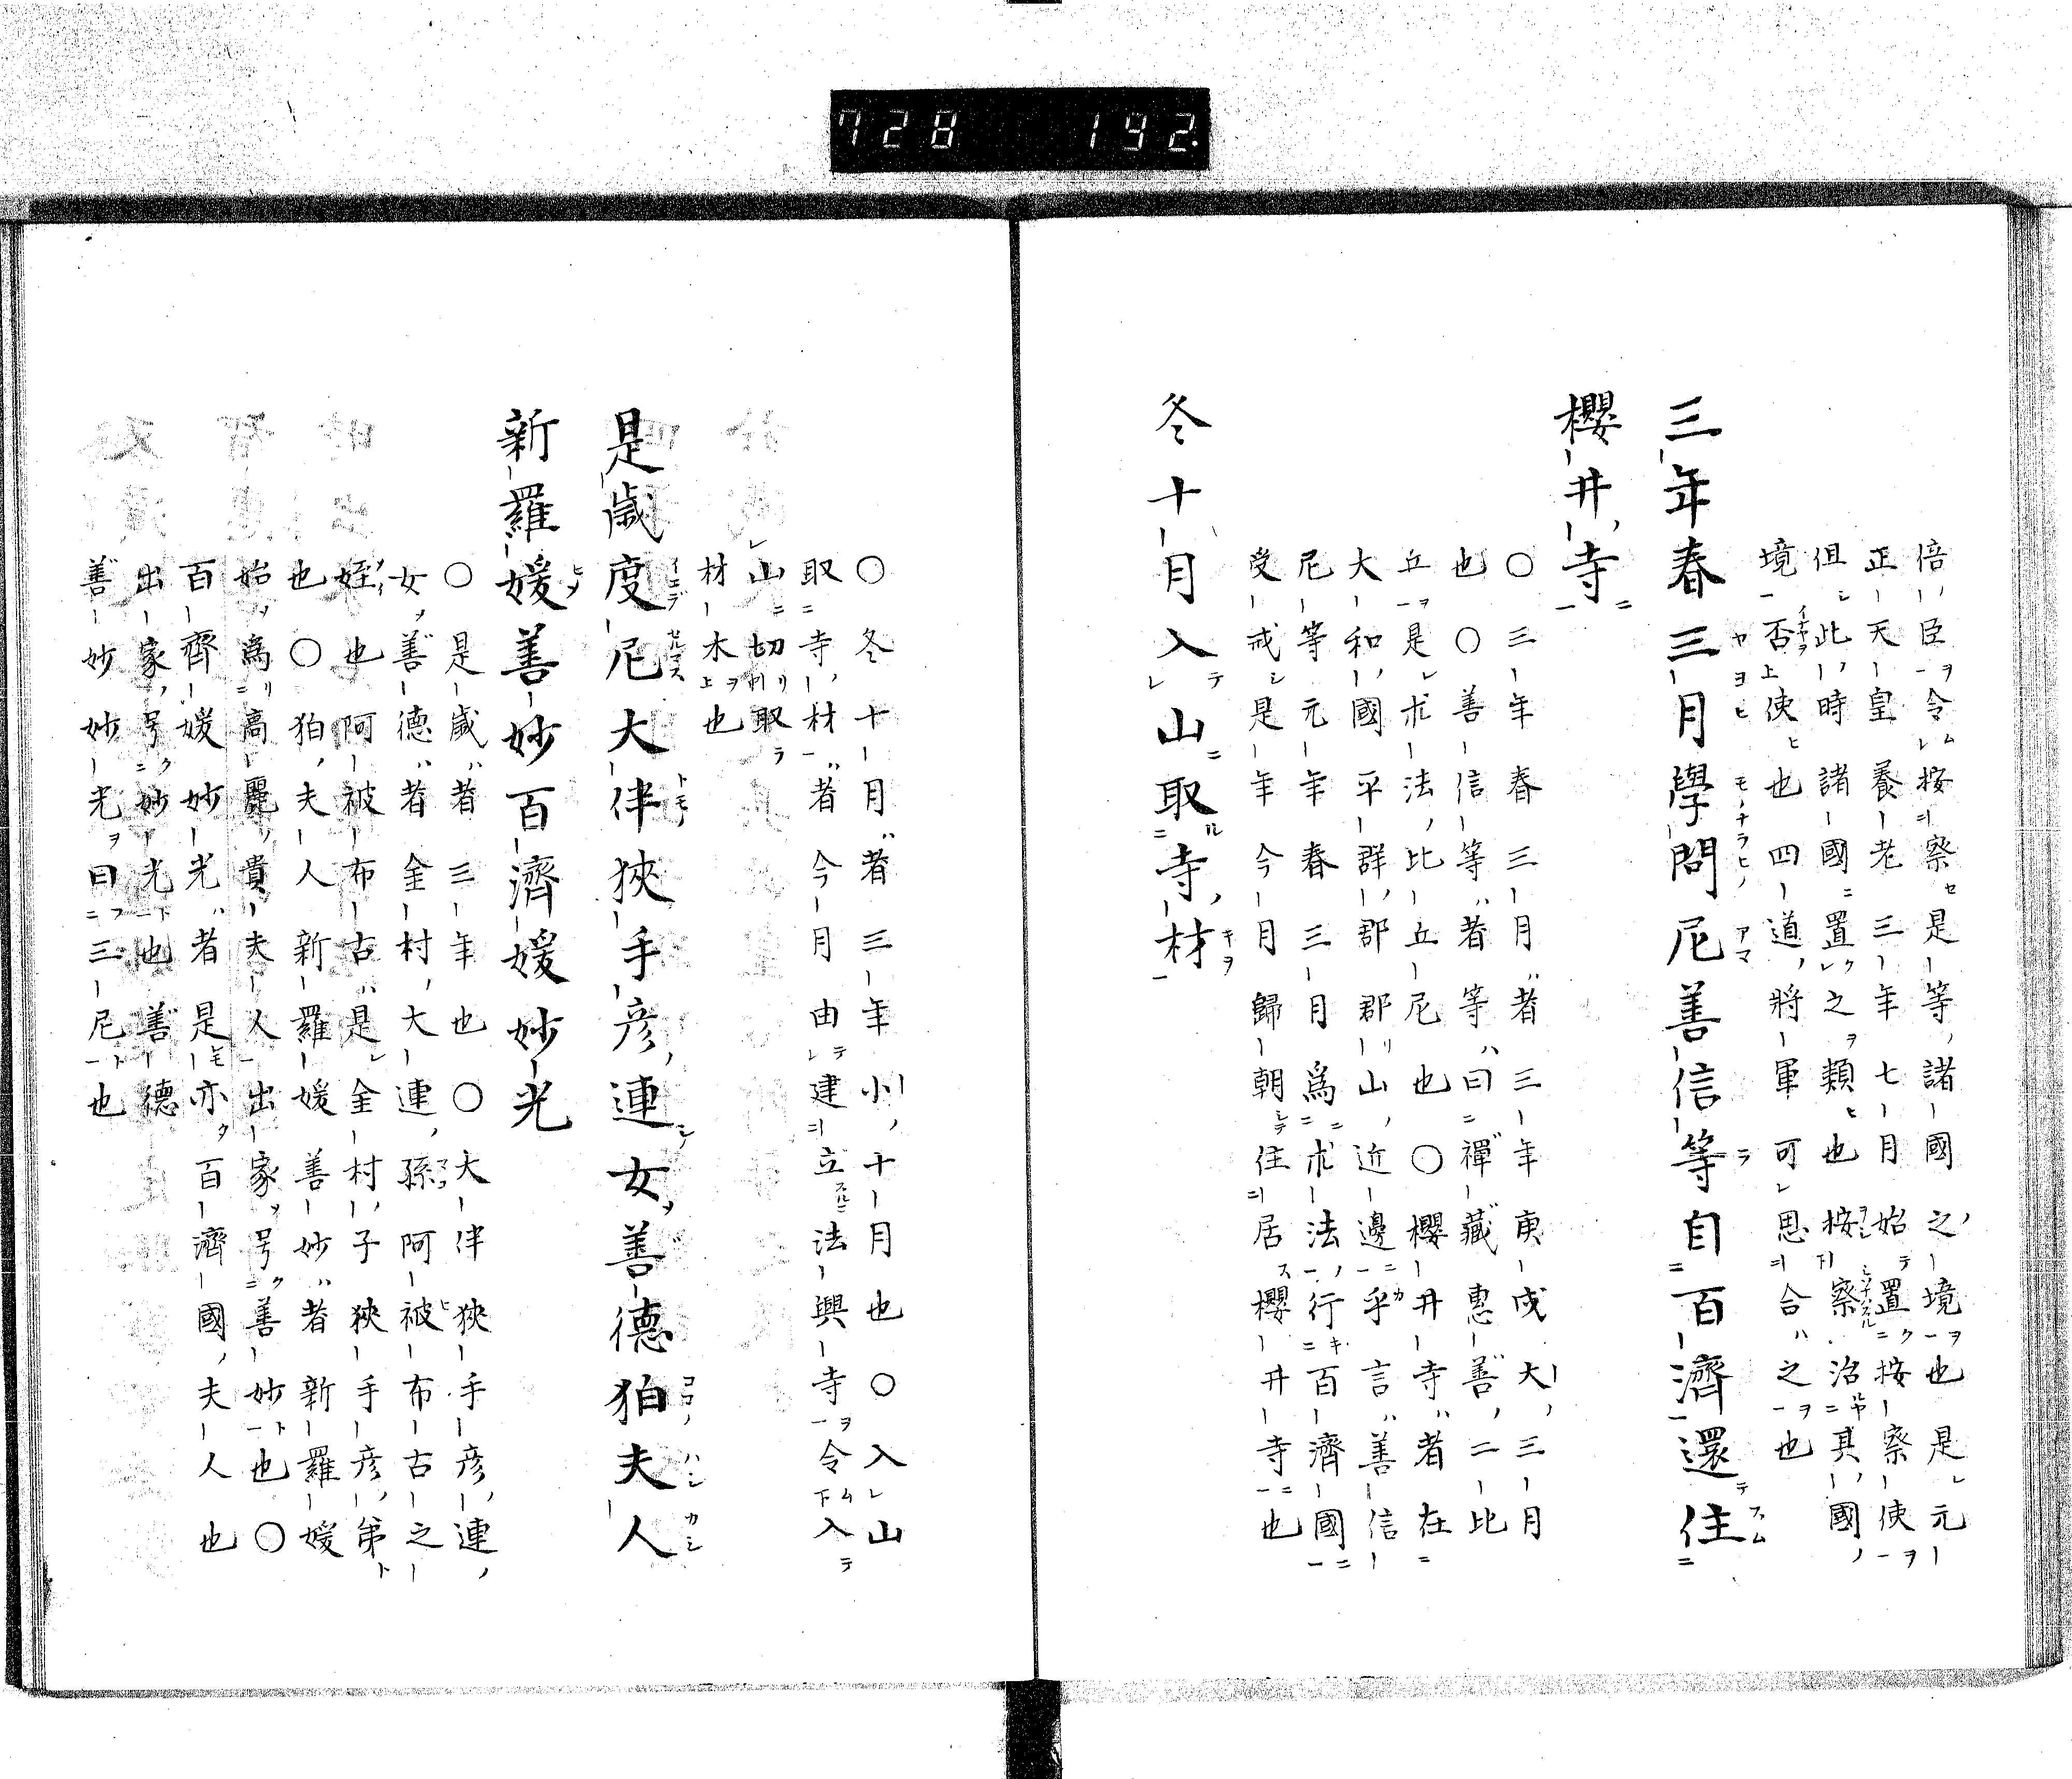 728 192.
倍臣令按察是等諸國之境也是元
正天皇養老三年七月始置按察使
但此時諸國置之類也按察治其國
境否使也四道將軍可思合之也
三年春三月學問尼善信等自百濟還住
櫻井寺
〇三年春三月者三年庚戌大三月
也〇善信等者等曰禪藏惠善二比
丘是求法比丘尼也〇櫻井寺者在
大和國平群郡郡山近邊乎言善信
尼等元年春三月爲求法行百濟國
受戒是年今月歸朝住居櫻井寺也
冬十月入山取寺材
〇冬十月者三年小十月也〇入山
取寺材者今月由建立法興寺令入
山切取
材木也
是歲度尼大伴狹手彦連女善德狛夫人
新羅媛善妙百濟媛妙光
〇是歲者三年也〇大伴狹手彦連
女善德者金村大連孫阿被布古之
姪也阿被布古是金村子狹手彦弟
也〇狛夫人新羅媛善妙者新羅媛
始爲高麗貴夫人出家号善妙也〇
百齊媛妙光者是亦百濟國夫人也
出家号妙光也善德
善妙妙光曰三尼也